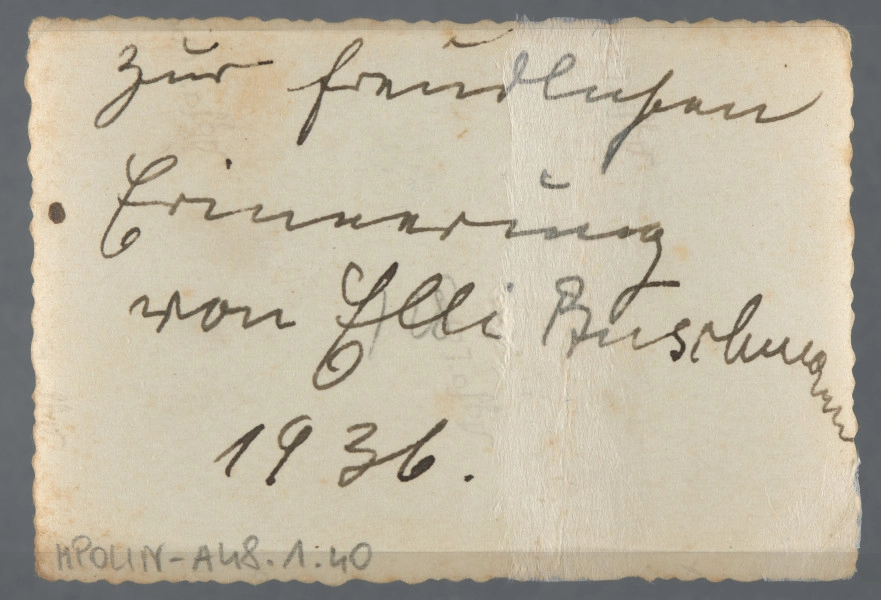 zur freudlichen
Erinnerung
von Elli Buschmann
1936.
MPOLIN-A48.1.40